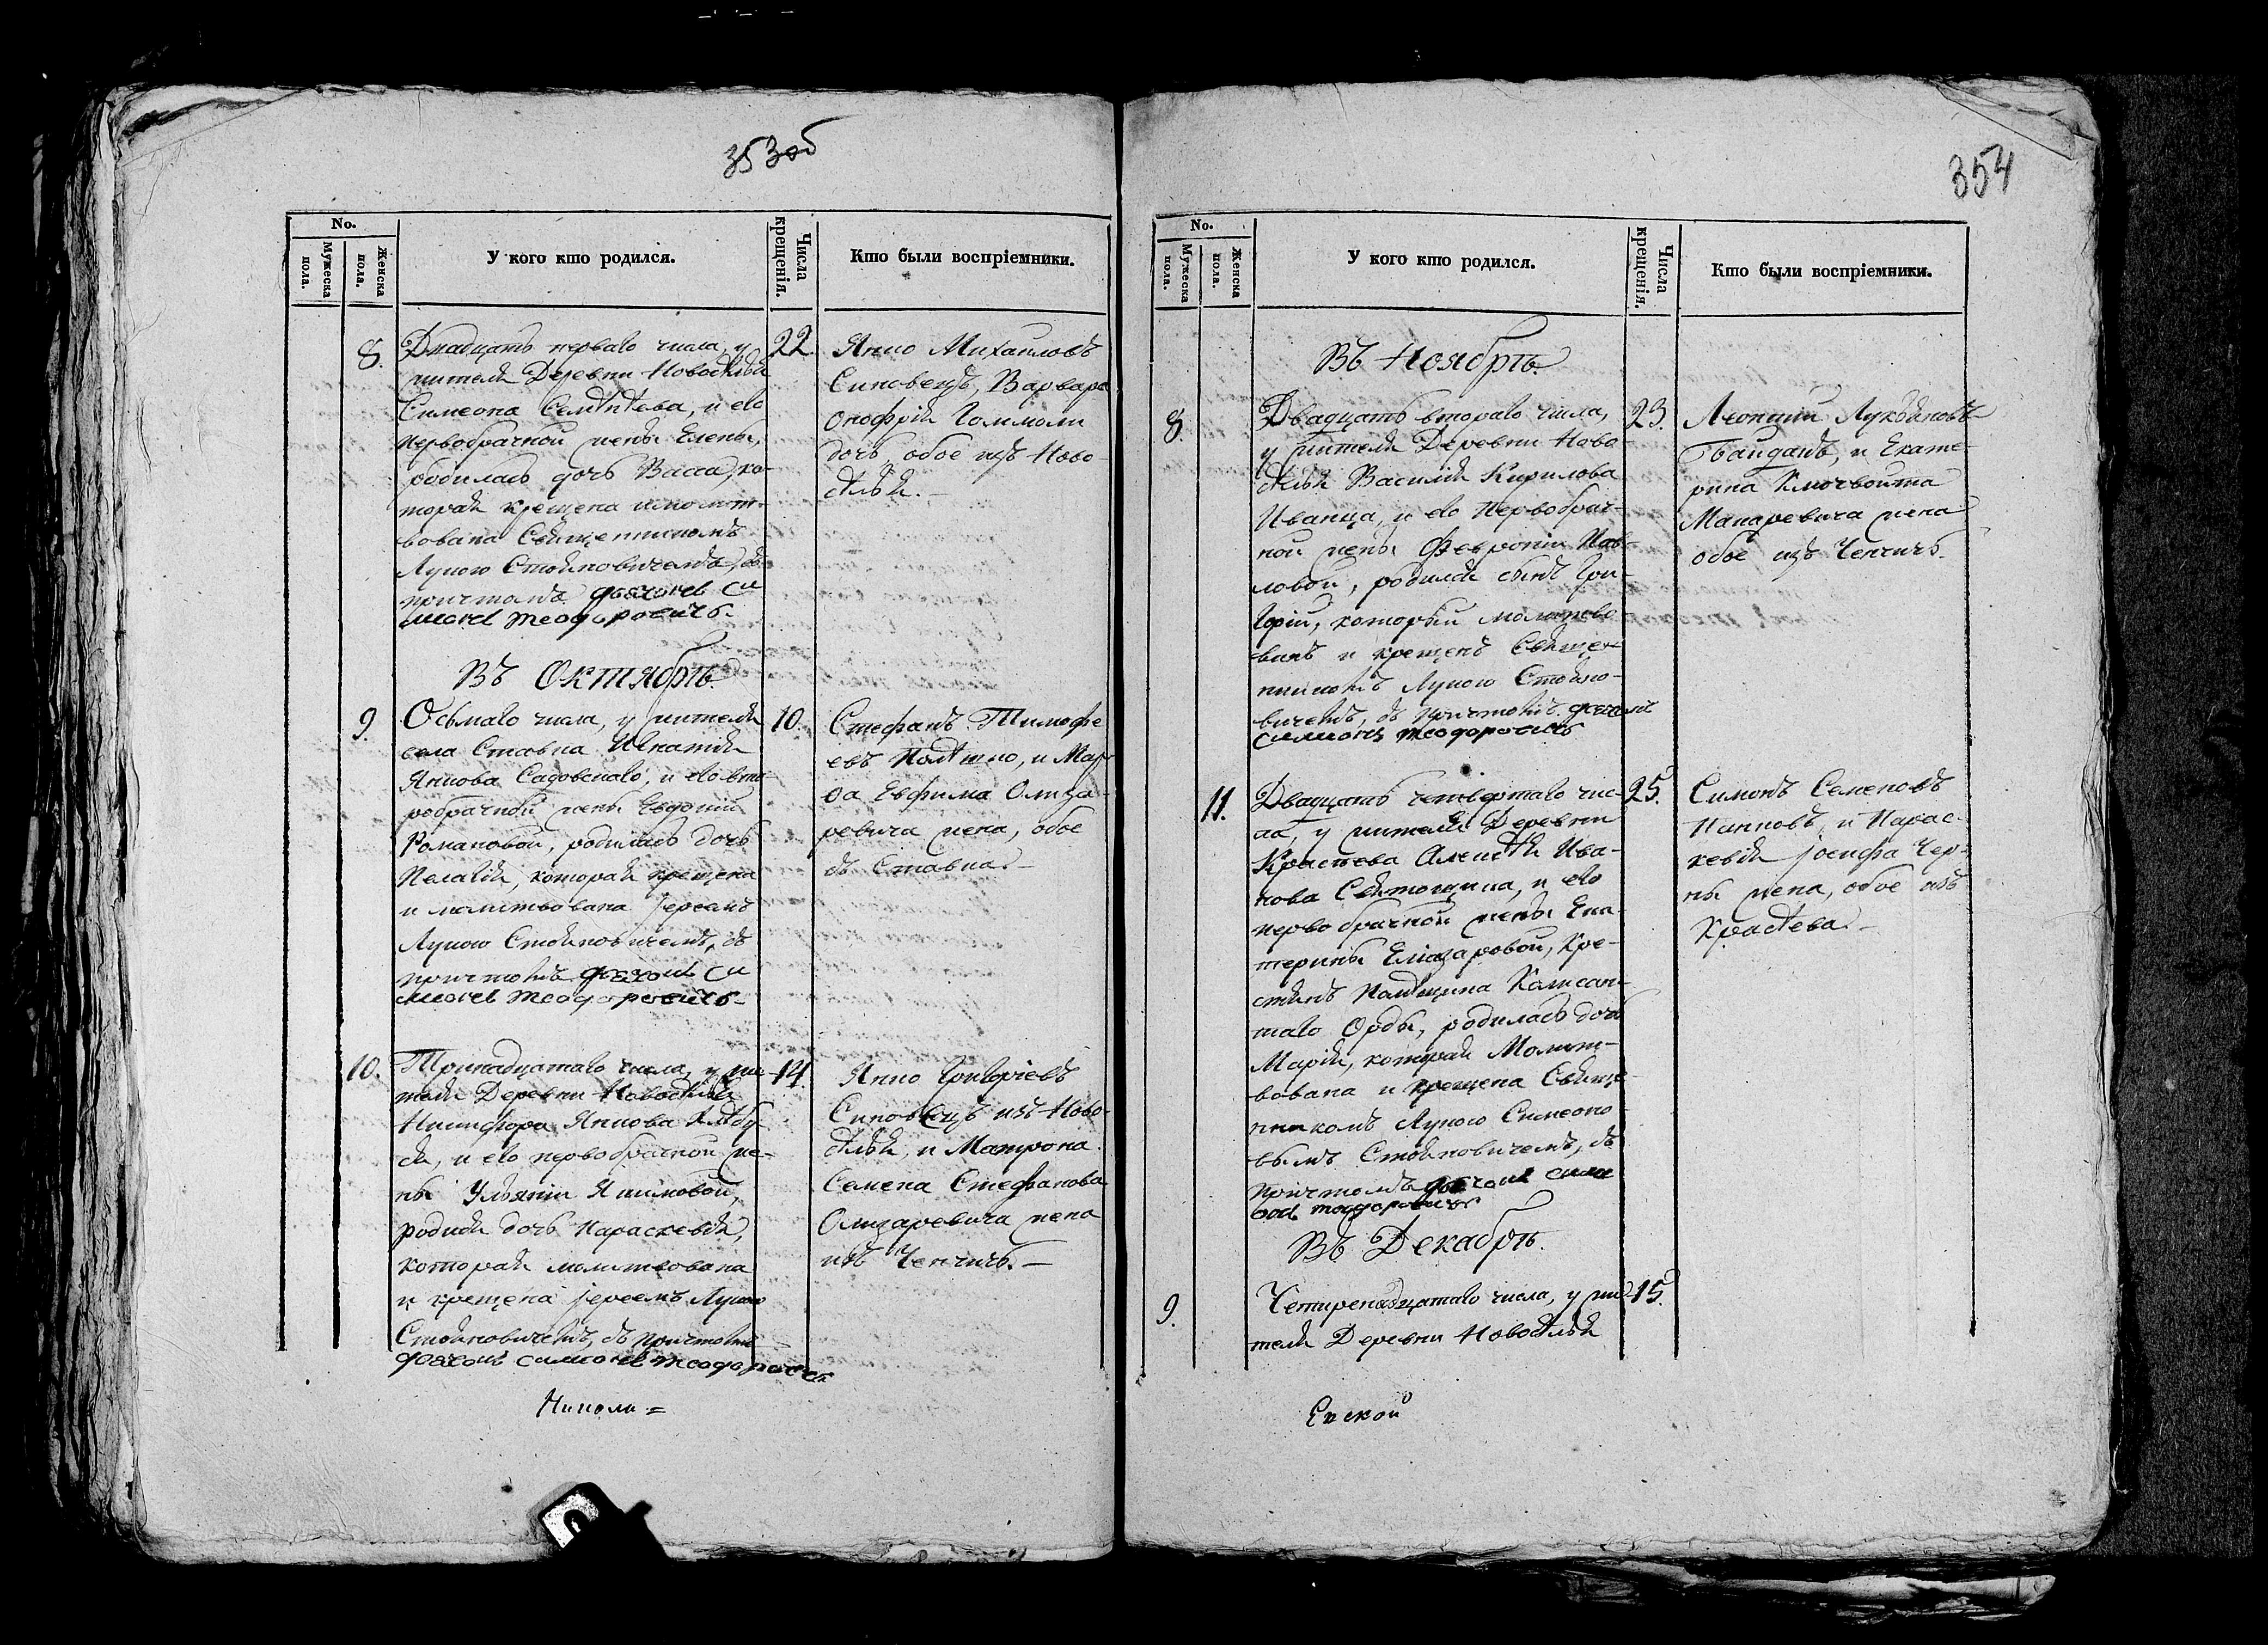 353об
No.
Мужеска пола.
Женска пола.
У кого кто родился.
Числа крещенія.
Кто были воспріемники.
8.
Двадцать перваго числа, у
жителя Деревни Новосѣлки
Симеона, и его
первобрачной жены Елены,
родилась дочь Васса, ко-
торая крещена и молит-
вована Священникомъ
Лукою Стояновичемъ, въ
причтомъ
22.
Янко Михаиловъ
Синовецъ, Варвара
Онофрія
дочь, обое изъ Ново-
сѣлки.
Въ Октябрѣ.
9.
Осьмаго числа, у жителя
села Ставна Игнатія
Янкова Садовскаго, и его вто-
робрачной жены Евдокіи
Романовой, родилась дочь
Пелагія, которая крещена
и молитвована Іереемъ
Лукою Стояновичемъ, въ
10.
Стефанъ Тимофе
евъ, и Мар-
Евфима Олиза-
ревича жена, обое
съ Ставна.
10.
Тринадцатаго числа, у жи-
теля Деревни Новосѣлки
Никифора Янкова
и его первобрачной же-
ны Ульяніи Якимовой,
родися дочь Параскевія,
которая молитвована
и крещена Іереемъ Лукою
Стояновичемъ, съ причтомъ
14.
Янко Григоріевъ
Синовецъ изъ Ново-
сѣлки, и Матрона
Семена Стефанова
Олизаревича жена
изъ Ченчичъ.
Николи=
354
No.
Мужеска пола.
Женска пола.
У кого кто родился.
Числа крещенія.
Кто были воспріемники.
Въ Ноябрѣ.
8.
Двадцать втораго числа,
у жителя Деревни Ново-
сѣлки Василія Кирилова
Иванца, и его первобрач-
ной жены Февроніи Пав-
ловой, родился сынъ Гри-
горій, который молитво-
ванъ и крещенъ Священ-
никомъ Лукою Стояно-
вичемъ, съ причтомъ
23.
Леонтій Лукьяновъ
и Екате-
рина
Макаревича жена
обое изъ Ченчичъ.
11.
Двадцать четвертаго чис-
ла, у жителя Деревни
Красѣева Алексѣя Ива-
нова, и его
первобрачной жены Ека-
терины Елизаровой, Кре-
стянъ Помѣщика
Орды, родилась дочь
Марія, которая Молит-
вована и крещена Свяще-
нникомъ Лукою Симеоно-
вымъ Стояновичемъ, съ
причтомъ
25.
Симонъ Семеновъ
и Парас-
кевія Іосифа Чер-
ны жена, обое изъ
Красѣева.
Въ Декабрѣ.
9.
Четиренадцатаго числа, у жи-
теля Деревни Новосѣлки
15.